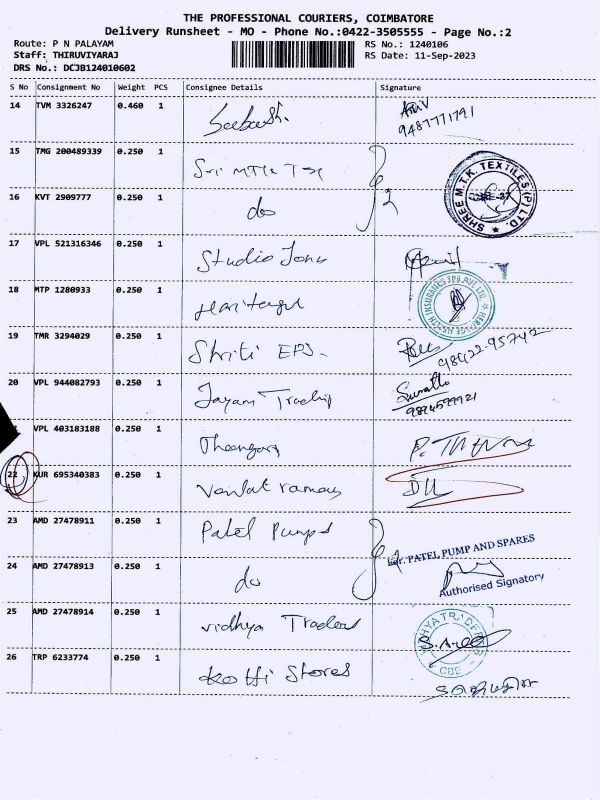 THE PROFESSIONAL COURIERS, COIMBATORE
Delivery Runsheet - MO - Phone No.:0422-3505555 - Page No.:2
Route: P N PALAYAM RS No.: 1240106
Staff: THIRUVIYARAJ RS Date: 11-Sep-2023
DRS No.: DCJB124010602
S No Consignment No Weight PCS Consignee Details Signature
14 TVM 3326247 0.460 1
9487771791
15 TMG 200489339 0.250 1 Sri MTK Tex
16 KVT 2909777 0.250 1 do 2
SHREE M.T.K. TEXTILES (P) LTD.
17 VPL 521316346 0.250 1 Studio Jons
18 MTP 1280933 0.250 1 Heritage
19 TMR 3294029 0.250 1 Shriti EPS.
98422-95742
20 VPL 944082793 0.250 1 Jayam Trading Sumathi
VPL 403183188 0.250 1
22 KUR 695340383 0.250 1 Venkat ramau
23 AMD 27478911 0.250 1 Patel Pumps
For. PATEL PUMP AND SPARES
24 AMD 27478913 0.250 1 do
Authorised Signatory
25 AMD 27478914 0.250 1 vidhya Traders
VIDHYA TRADERS
CBE
26 TRP 6233774 0.250 1 Kotti Stores